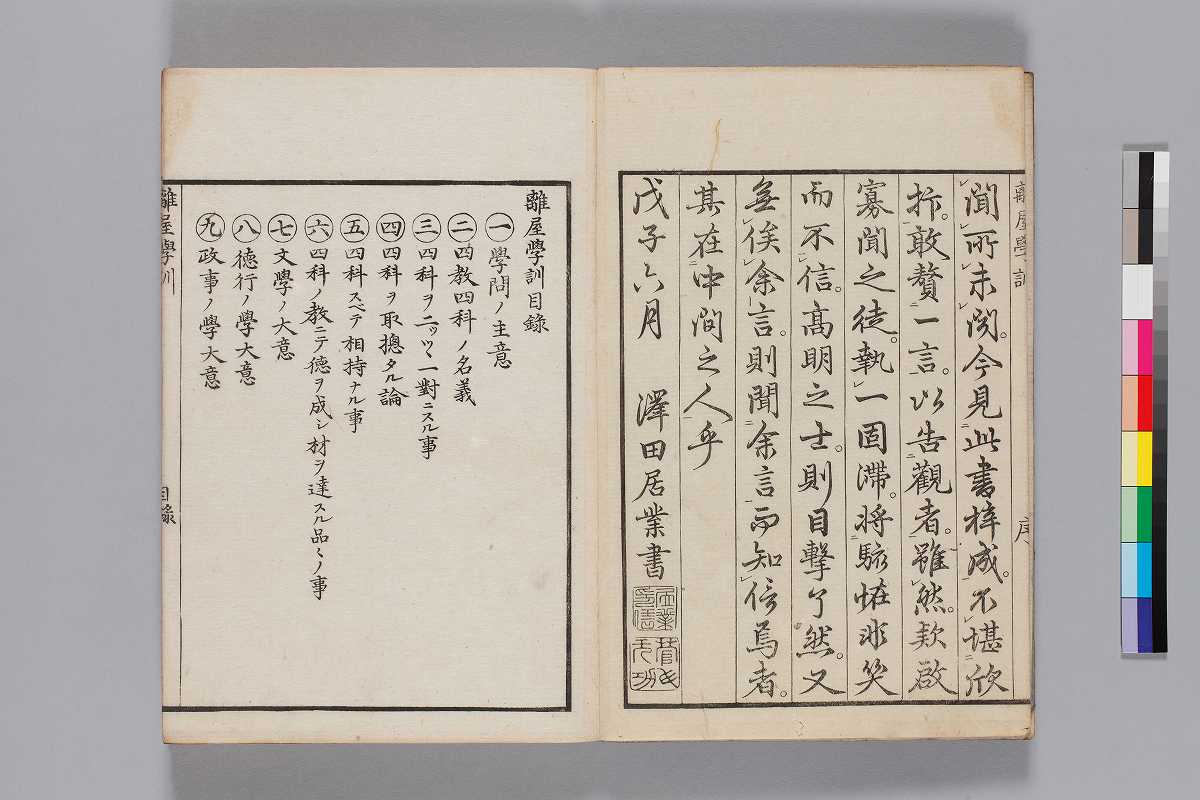 聞所未聞。今見此書梓成。不堪欣
抃。敢贅一言。以告觀者。雖然款啟
寡聞之徒。執一固滯。將駭怪非笑
而不信。高明之士。則目擊了然。又
無俟余言。則聞余言而知信焉者。
其在中間之人乎
戊子六月 澤田居業書
離屋學訓
序
離屋學訓目錄
一 學問ノ主意
二 四教四科ノ名義
三 四科ヲ二ツヽ一對ニスル事
四 四科ヲ取摠タル論
五 四科スベテ相持ナル事
六 四科ノ教ニテ德ヲ成シ材ヲ達スル品〻ノ事
七 文學ノ大意
八 德行ノ學大意
九 政事ノ學大意
離屋學訓
目錄